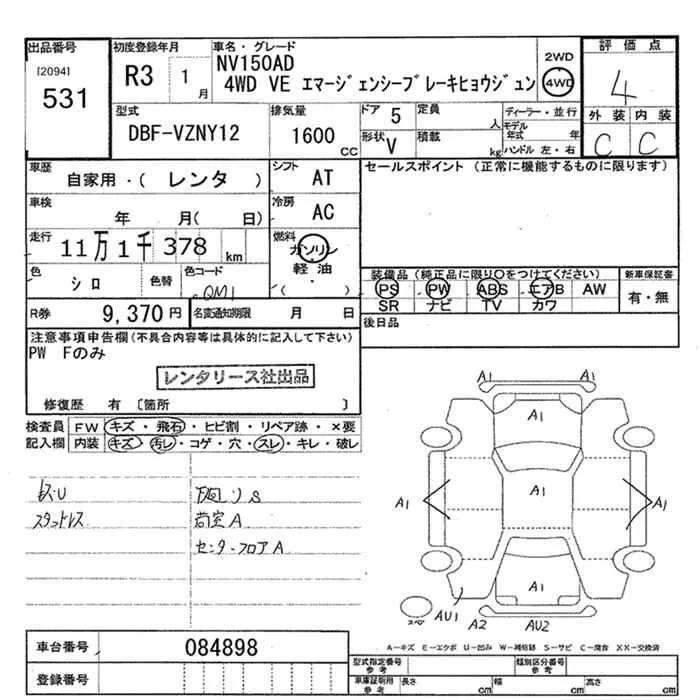 出品番号
[2094]
531
初度登録年月
R3 1月
車名・グレード
NV150AD
4WD VE エマージェンシーブレーキヒョウジュン
2WD
4WD
評価点
4
外装 内装
C C
型式
DBF-VZNY12
排気量
1600 CC
ドア 5
形状 V
定員 人
積載 kg
ディーラー・並行
モデル年式 年
ハンドル 左・右
車歴
自家用・( レンタ )
シフト AT
車検 年 月( 日)
冷房 AC
走行 11万1千378 km
燃料 ガソリン
軽油
( )
色 シロ
色替
色コード QM1
R券 9,370円
名変通知期限 月 日
セールスポイント (正常に機能するものに限ります)
装備品 (純正品に限り○をつけてください)
PS PW ABS エアB AW
SR ナビ TV カワ
新車保証書
有・無
後日品
注意事項申告欄(不具合内容等は具体的に記入して下さい)
PW Fのみ
レンタリース社出品
修復歴 有 〔箇所 〕
検査員記入欄
FW キズ・飛石・ヒビ割・リペア跡・×要
内装 キズ・汚レ・コゲ・穴・スレ・キレ・破レ
スタットレス
下回りS
荷室A
センターフロアA
A1 A1
A1
A1 A1 A1
A1
AU1 A2 AU2
スペア
A-キズ E-エクボ U-凹み W-補修跡 S-サビ C-腐食 XX-交換済
車台番号 084898
登録番号
型式指定番号 参考
類別区分番号 参考
車庫証明用 参考
長さ cm 幅 cm 高さ cm